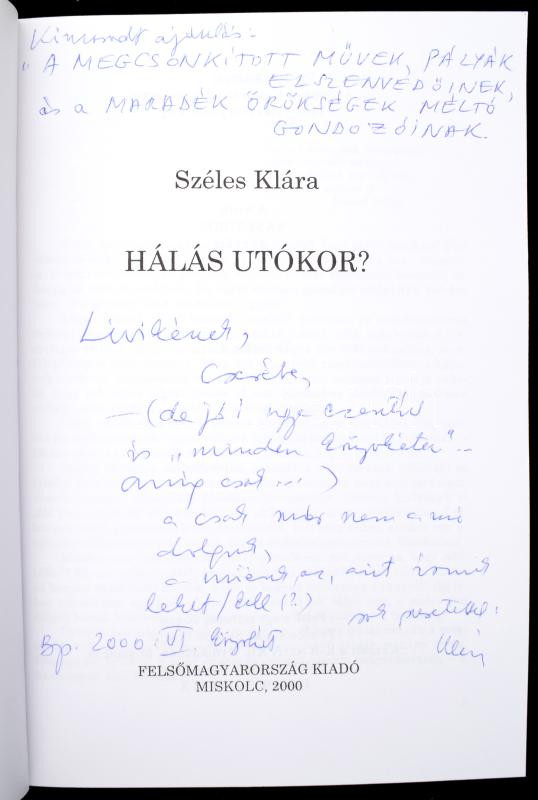 Kimaradt ajánlás:
"A MEGCSONKÍTOTT MŰVEK, PÁLYÁK
ELSZENVEDŐINEK,
és a MARADÉK ÖRÖKSÉGEK MÉLTÓ
GONDOZÓINAK.
Széles Klára
HÁLÁS UTÓKOR?
Livikének,
Cserébe,
— (de jó! ugye ezentúl
is „minden könyvhéten"..
amíg csak ...)
a csak már nem a mi
dolgunk,
a miénk az, amit írnunk
lehet/kell (?)
sok szeretettel:
Bp. 2000. VI. Könyvhét
Klári
FELSŐMAGYARORSZÁG KIADÓ
MISKOLC, 2000